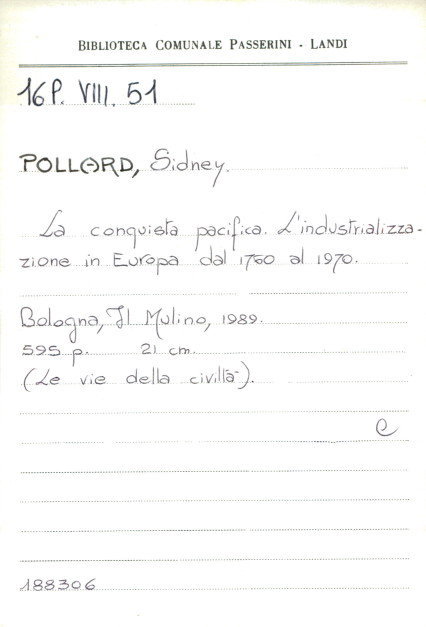 BIBLIOTECA COMUNALE PASSERINI - LANDI
16P. VIII. 51
POLLARD, Sidney.
La conquista pacifica. L'industrializza-
zione in Europa dal 1760 al 1970.
Bologna, Il Mulino, 1989.
595 p. 21 cm.
(Le vie della civiltà).
e
188306